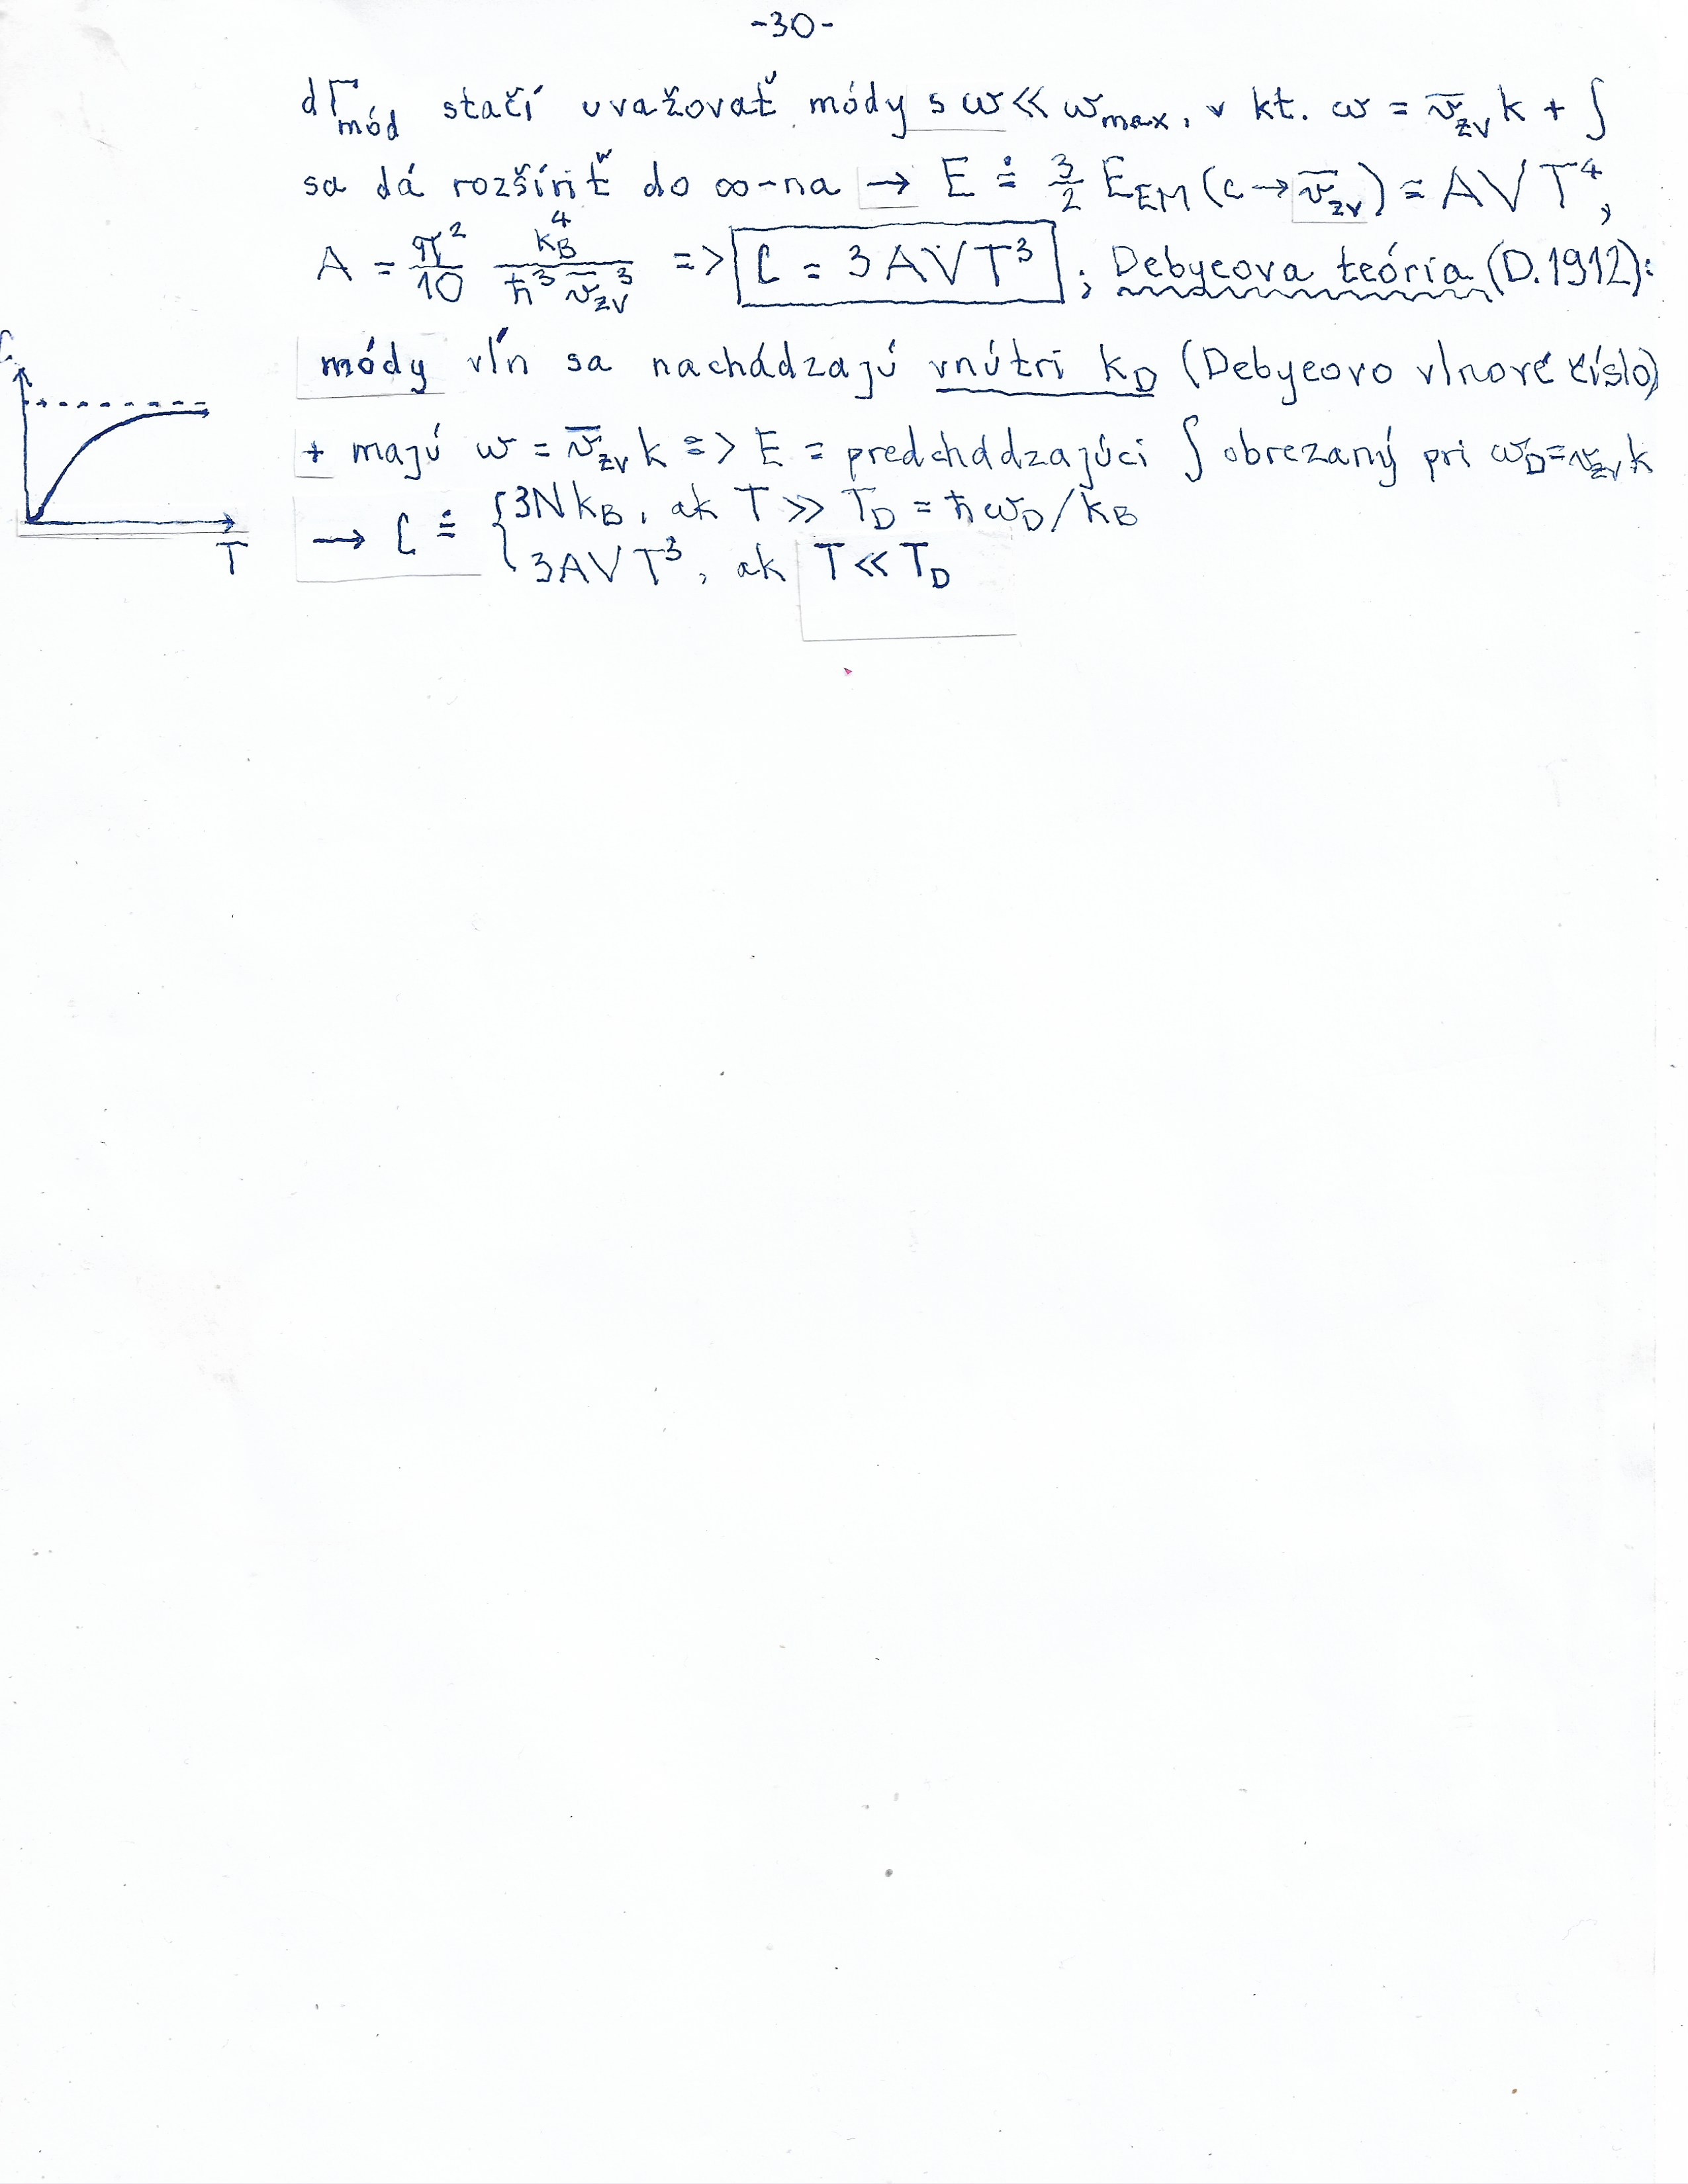 -30-
dΓ_mód stačí uvažovať módy s ω ≪ ω_max, v kt. ω = v̄_zv k + ∫
sa dá rozšíriť do ∞-na → E ≐ 3/2 E_EM (c → v̄_zv) = AVT⁴,
A = π²/10 k_B⁴/(ħ³ v̄_zv³) => C = 3AVT³ ; Debyeova teória (D. 1912):
módy vĺn sa nachádzajú vnútri k_D (Debyeovo vlnové číslo)
+ majú ω = v̄_zv k => E = predchádzajúci ∫ obrezaný pri ω_D = v_zv k
→ C ≐ { 3Nk_B, ak T ≫ T_D = ħω_D/k_B
3AVT³, ak T ≪ T_D
C
T